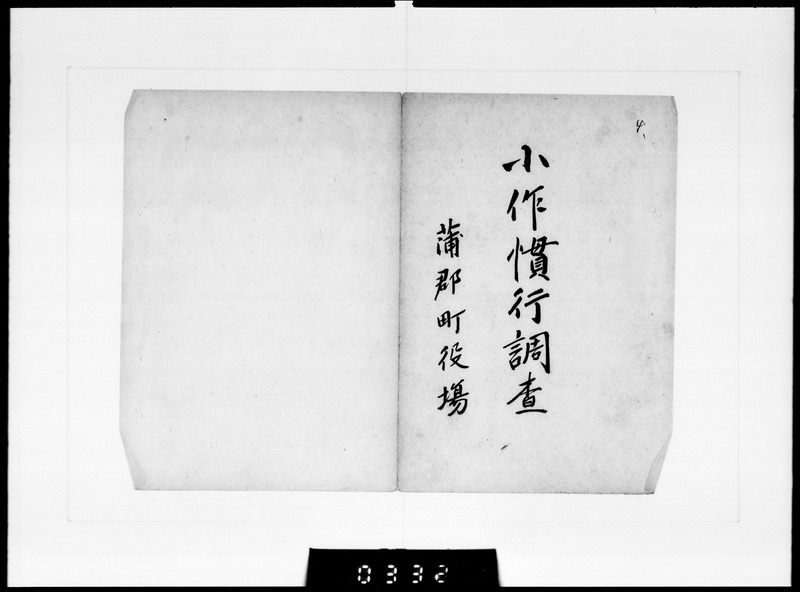 4.
小作慣行調査
蒲郡町役場
0332